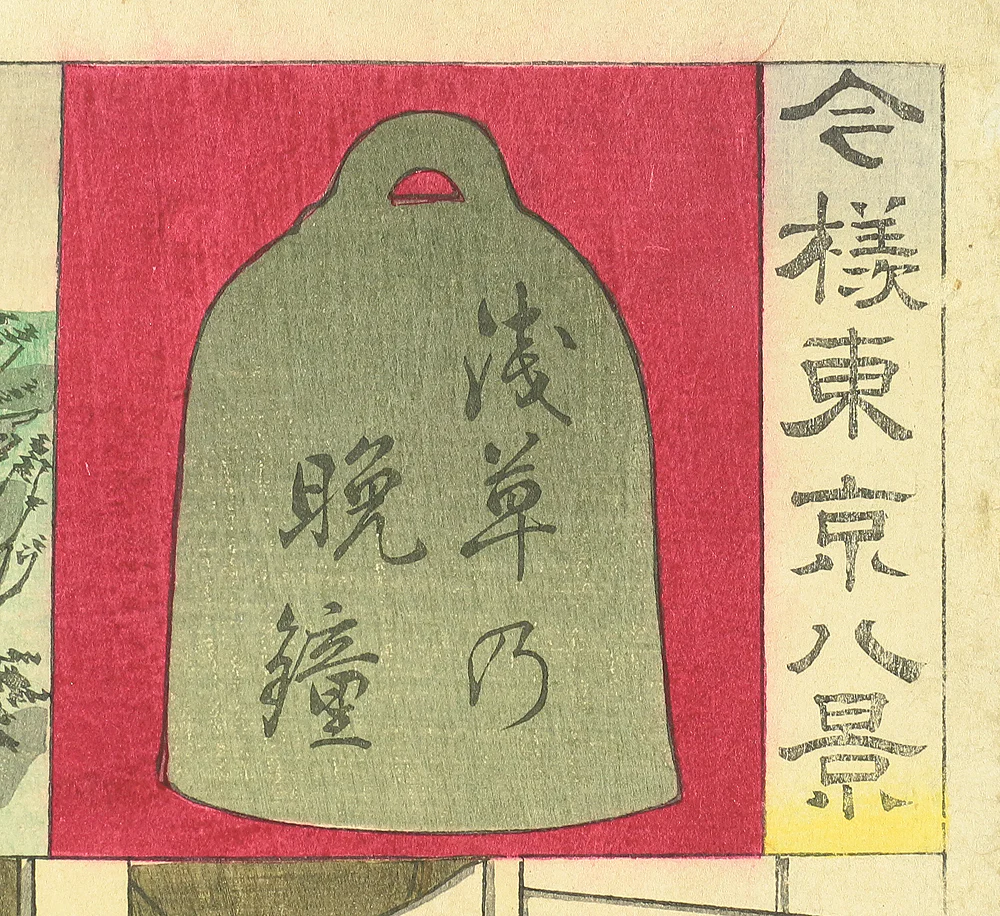 今樣東京八景
浅草乃
晩鐘